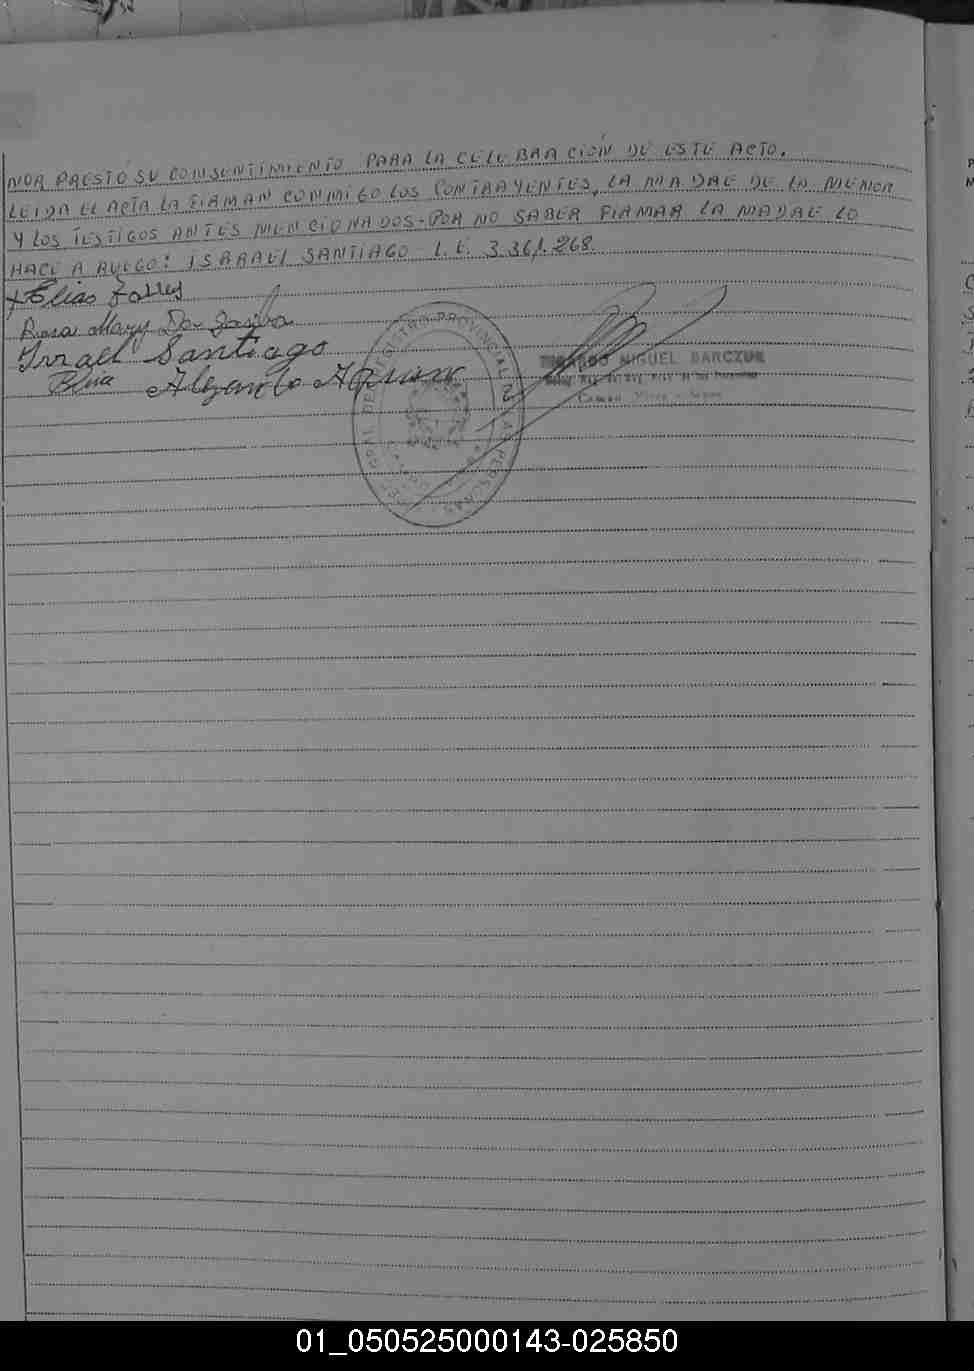 NOR PRESTÓ SU CONSENTIMIENTO PARA LA CELEBRACIÓN DE ESTE ACTO.
LEIDA EL ACTA LA FIRMAN CONMIGO LOS CONTRAYENTES, LA MADRE DE LA MENOR
Y LOS TESTIGOS ANTES MENCIONADOS. POR NO SABER FIRMAR LA MADRE LO
HACE A RUEGO: ISRRAEL SANTIAGO L.E. 3.361.268.
Elias
Rosa Mary Da
Israel Santiago
Elina Alejandro
REGISTRO PROVINCIAL DE LAS PERSONAS
MIGUEL BARCZUK
01_050525000143-025850